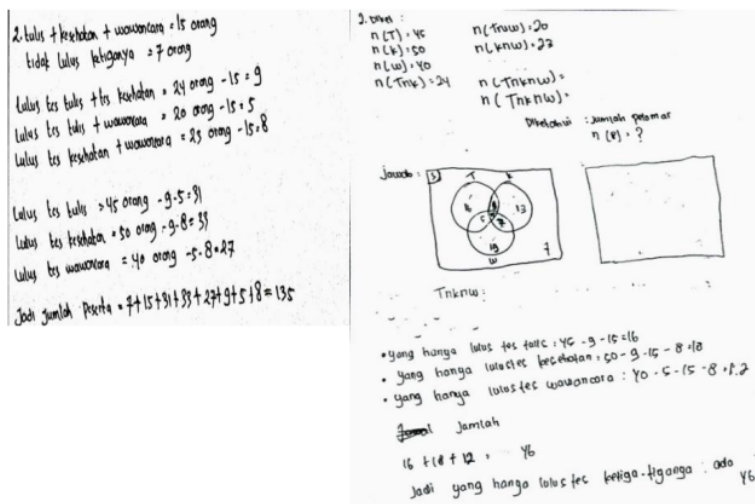 2. tulis + kesehatan + wawancara = 15 orang
tidak lulus ketiganya = 7 orang
lulus tes tulis + tes kesehatan = 24 orang - 15 = 9
lulus tes tulis + wawancara = 20 orang - 15 = 5
lulus tes kesehatan + wawancara = 23 orang - 15 = 8
lulus tes tulis = 45 orang - 9 - 5 = 31
lulus tes kesehatan = 50 orang - 9 - 8 = 33
lulus tes wawancara = 40 orang - 5 - 8 = 27
Jadi jumlah peserta = 7+15+31+33+27+9+5+8 = 135
2. Diket :
n(T) = 45
n(k) = 50
n(w) = 40
n(Tnk) = 24
n(Tnw) = 20
n(knw) = 23
n(Tnknw) =
n(Tnknw) =
: jumlah pelamar
n(s) = ?
Jawab :
S
T
k
13
5
w
7
Tnknw :
• yang hanya lulus tes tulis : 45 - 9 - 15 = 16
• yang hanya lulus tes kesehatan : 50 - 9 - 15 - 8 = 18
• yang hanya lulus tes wawancara : 40 - 5 - 15 - 8 = 12
Jumlah
16 + 18 + 12 = 46
Jadi yang hanya lulus tes ketiga-tiganya : ada 46